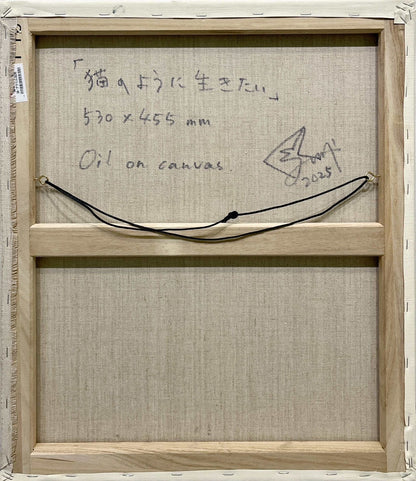 「猫のように生きたい」
530 × 455 mm
Oil on canvas.
2025